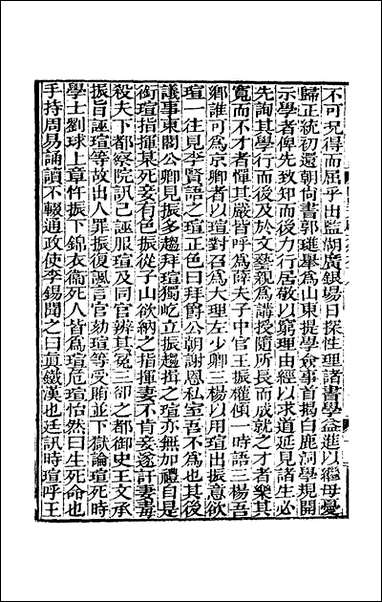 不可況得而屈乎出監湖廣銀場日探性理諸書學益進以繼母憂
歸正統初還朝尚書郭璡舉爲山東提學僉事首揭白鹿洞學規開
示學者俾先致知而後力行居敬以窮理由經以求道延見諸生必
先詢其學行而後及於文藝親爲講授隨所長而成就之才者樂其
寬而不才者憚其嚴皆呼爲薛夫子中官王振權傾一時語三楊吾
卿誰可爲京卿者以瑄對召爲大理左少卿三楊以用瑄出振意欲
瑄一往見李賢語之瑄正色曰拜爵公朝謝恩私室吾不爲也其後
議事東閣公卿見振多趨拜瑄獨屹立振趨揖之瑄亦無加禮自是
銜瑄指揮某死妾有色振從子山欲納之指揮妻不肯妾遂訐妻毒
殺夫下都察院訊己誣服瑄及同官辨其冤三卻之都御史王文承
振旨誣瑄等故出人罪振復諷言官劾瑄等受賄並下獄論瑄死時
學士劉球上章忤振下錦衣衞死人皆爲瑄危瑄怡然曰生死命也
手持周易誦讀不輟通政使李錫聞之曰眞鐵漢也廷訊時瑄呼王